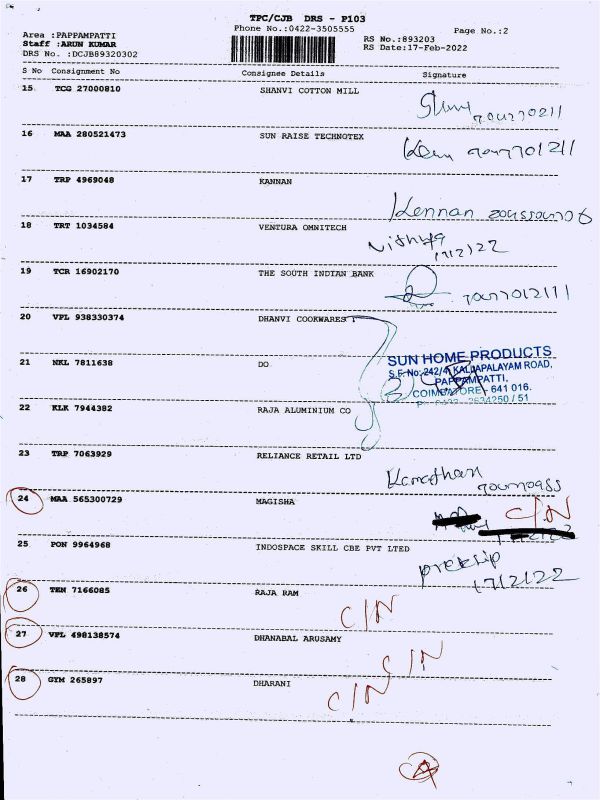 TPC/CJB DRS - P103
Phone No.:0422-3505555
Page No.:2
Area :PAPPAMPATTI
RS No.:893203
Staff :ARUN KUMAR
RS Date:17-Feb-2022
DRS No. :DCJB89320302
S No Consignment No Consignee Details Signature
15 TCG 27000810 SHANVI COTTON MILL
16 MAA 280521473 SUN RAISE TECHNOTEX
17 TRP 4969048 KANNAN
Kennan
18 TRT 1034584 VENTURA OMNITECH
Nithya
17/2/22
19 TCR 16902170 THE SOUTH INDIAN BANK
20 VPL 938330374 DHANVI COOKWARES
21 NKL 7811638 DO
SUN HOME PRODUCTS
S.F. No: 242/4, KALLAPALAYAM ROAD,
PAPPAMPATTI,
COIMBATORE - 641 016.
22 KLK 7944382 RAJA ALUMINIUM CO
23 TRP 7063929 RELIANCE RETAIL LTD
24 MAA 565300729 MAGISHA
C/N
25 PON 9964968 INDOSPACE SKILL CBE PVT LTED
17/2/22
26 TEN 7166085 RAJA RAM
C/N
27 VPL 498138574 DHANABAL ARUSAMY
C/N
28 GYM 265897 DHARANI
C/N